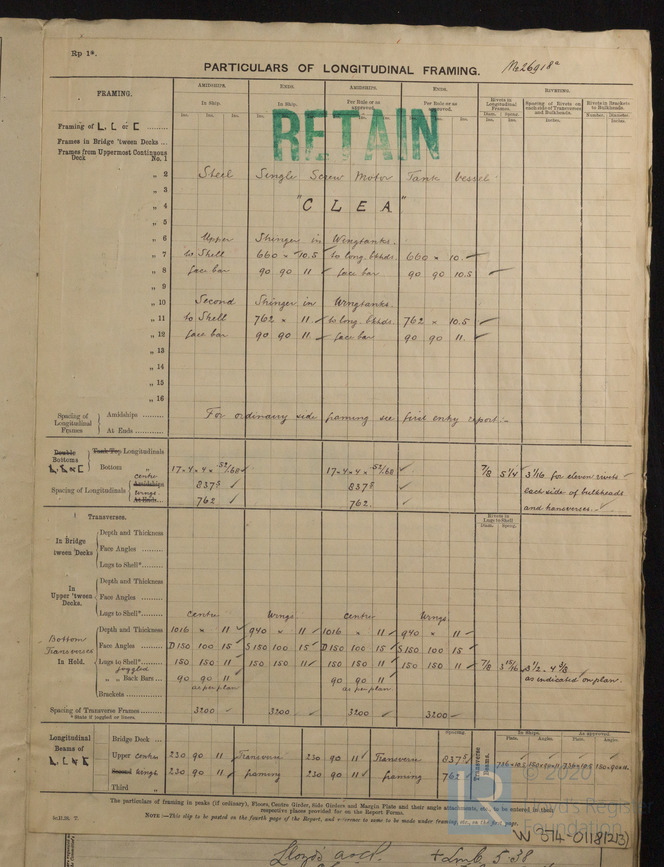 Rp 1*.
PARTICULARS OF LONGITUDINAL FRAMING.
No 26918a
FRAMING.
AMIDSHIPS. ENDS. AMIDSHIPS. ENDS.
In Ship. In Ship. Per Rule or as approved. Per Rule or as approved.
RIVETING.
Rivets in Longitudinal Frames. Spacing of Rivets on each side of Transverses and Bulkheads. Rivets in Brackets to Bulkheads.
Framing of L, [ or [
RETAIN
Frames in Bridge 'tween Decks ...
Frames from Uppermost Continuous Deck No. 1
„ 2 Steel Single Screw Motor Tank Vessel
„ 3
„ 4 "CLEA"
„ 5
„ 6 Upper Stringer in Wingtanks.
„ 7 to Shell 660 × 10.5 to long. bkhds. 660 × 10.
„ 8 face bar 90 90 11 face bar 90 90 10.5
„ 9
„ 10 Second Stringer in Wingtanks.
„ 11 to Shell 762 × 11. to long. bkhds. 762 × 10.5
„ 12 face bar 90 90 11. face bar 90 90 11.
„ 13
„ 14
„ 15
„ 16
Spacing of Longitudinal Frames Amidships
At Ends
For ordinary side framing see first entry report:-
Double Bottoms Tank Top Longitudinals
Bottom „ 17 × 4 × 4 × .52/.68 17 × 4 × 4 × .52/.68 7/8 5 1/4 3 1/16 for eleven rivets
Spacing of Longitudinals centre Amidships 837.5 837.5 each side of bulkheads
wings At Ends 762 762. and transverses.
Transverses.
Rivets in Lugs to Shell
Diam. Spcng.
In Bridge 'tween Decks
Depth and Thickness
Face Angles
Lugs to Shell*
In Upper 'tween Decks.
Depth and Thickness
Face Angles
Lugs to Shell* centre Wings. centre Wings.
Bottom Transverses In Hold.
Depth and Thickness 1016 × 11 940 × 11 1016 × 11 940 × 11
Face Angles D 150 100 15 S 150 100 15 D 150 100 15 S 150 100 15
Lugs to Shell* 150 150 11 150 150 11 150 150 11 150 150 11 7/8 3 15/16 3 1/2 - 4 3/8
joggled
„ „ Back Bars 90 90 11 90 90 11 as indicated on plan.
as per plan as per plan
Brackets
Spacing of Transverse Frames 3200 3200 3200 3200
* State if joggled or liners.
Longitudinal Beams of
Bridge Deck ...
Spacing.
In Ships. As approved.
Plate. Angles. Plate. Angles.
Upper centre 230 90 11 Transverse 230 90 11 Transverse 837.5
Transverse Beams.
Second wings 230 90 11 framing 230 90 11 framing 762
Third „
The particulars of framing in peaks (if ordinary), Floors, Centre Girder, Side Girders and Margin Plate and their angle attachments, etc., to be entered in their
respective places provided for on the Report Forms.
NOTE:—This slip to be posted on the fourth page of the Report, and reference to same to be made under framing, etc., on the first page.
© 2020
Lloyd's Register
Foundation
W574-0118(2/3)
Lloyd's